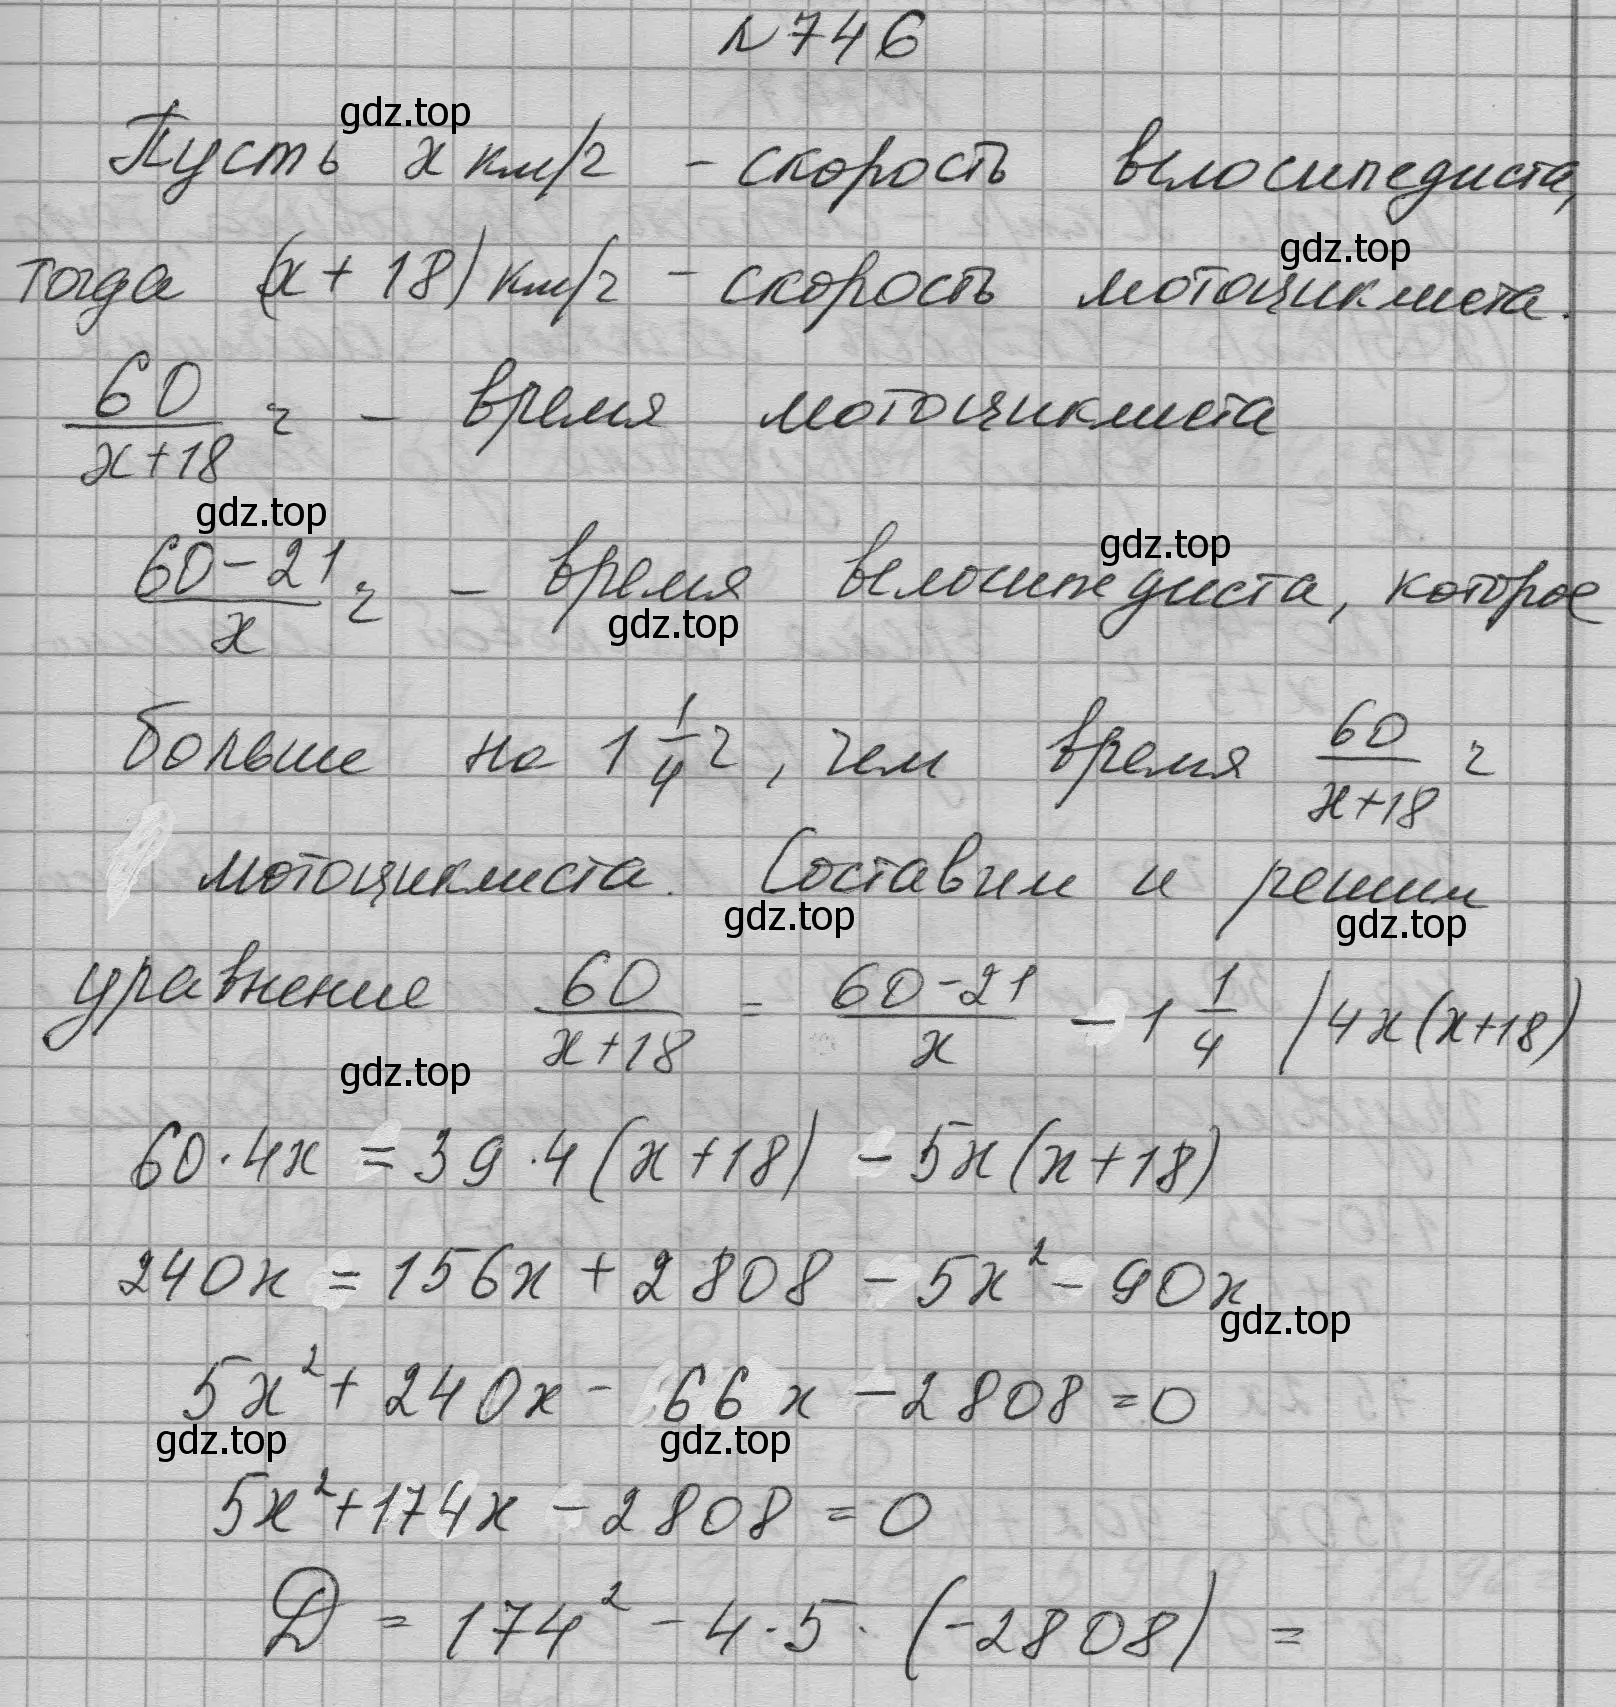 №746
gdz.top
Пусть x км/ч - скорость велосипедиста,
gdz.top
тогда (x + 18) км/ч - скорость мотоциклиста.
60/(x+18) ч - время мотоциклиста
gdz.top
gdz.top
(60-21)/x ч - время велосипедиста, которое
gdz.top
больше на 1 1/4 ч, чем время 60/(x+18) ч
мотоциклиста. Составим и решим
gdz.top
gdz.top
уравнение 60/(x+18) = (60-21)/x - 1 1/4 /4x(x+18)
gdz.top
60·4x = 39·4(x+18) - 5x(x+18)
240x = 156x + 2808 - 5x² - 90x
gdz.top
5x² + 240x - 66x - 2808 = 0
gdz.top
gdz.top
5x² + 174x - 2808 = 0
D = 174² - 4·5·(-2808) =